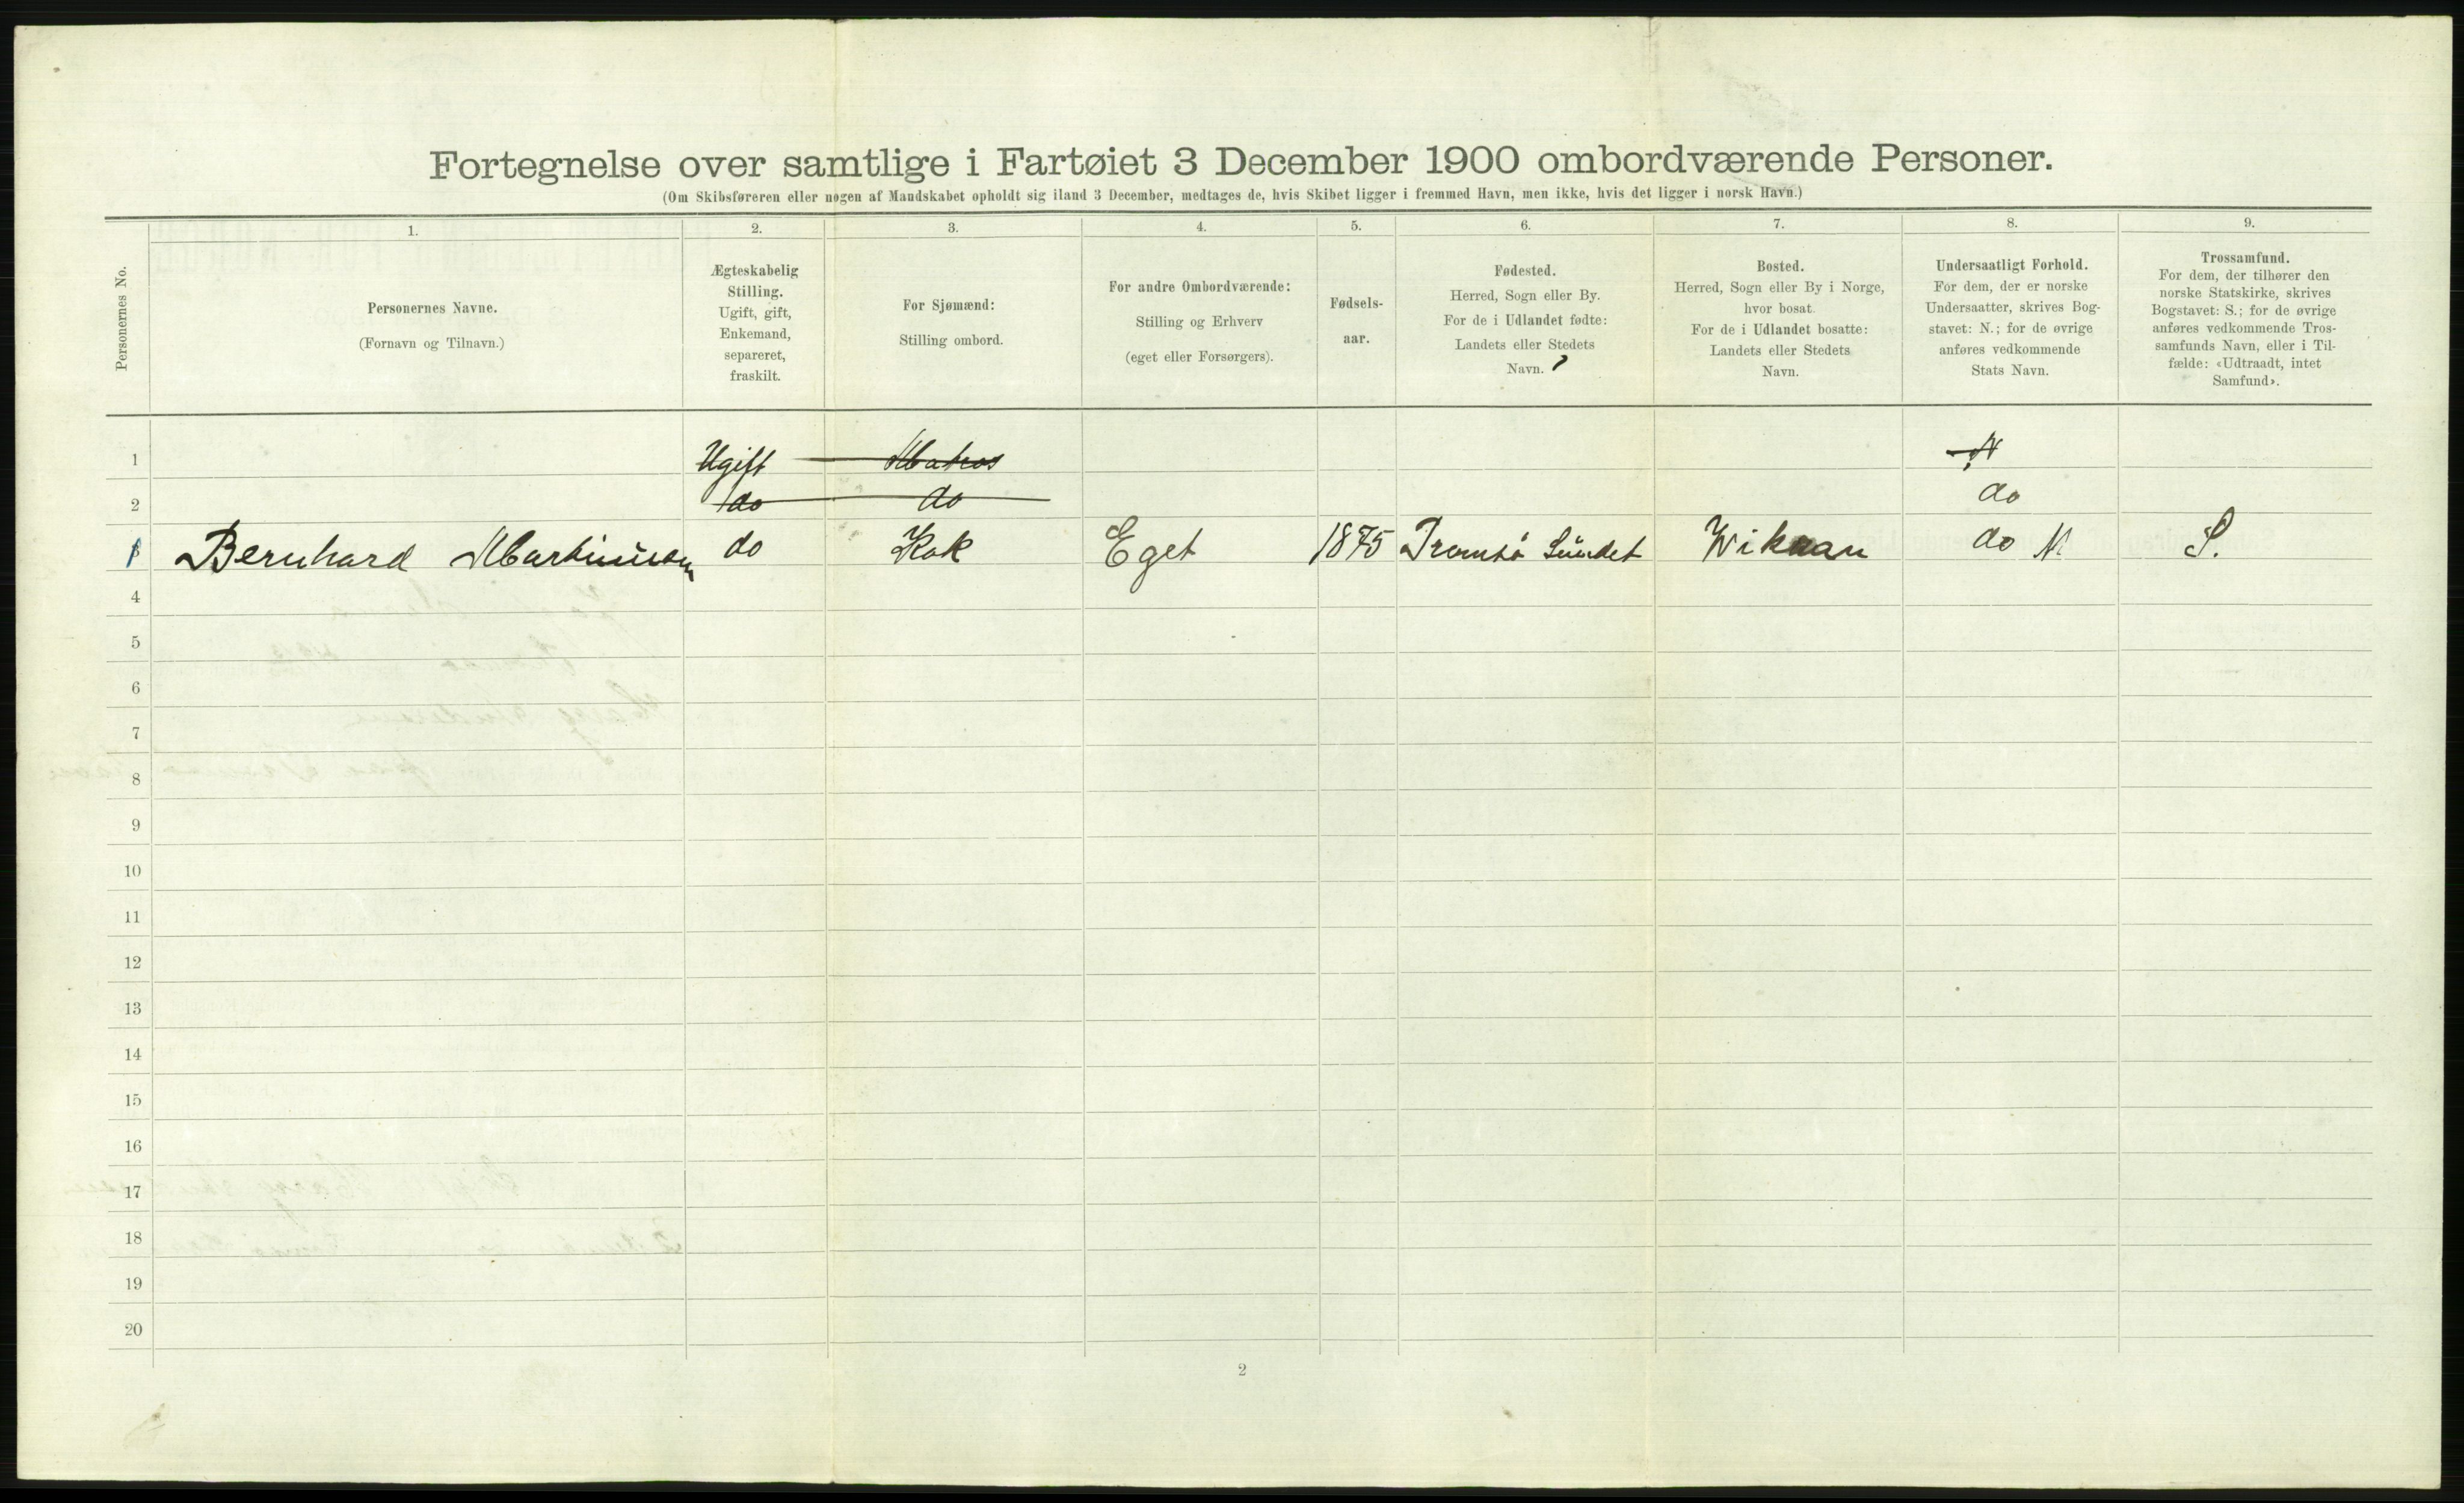 Fortegnelse over samtlige i Fartøiet 3 December 1900 ombordværende Personer.
(Om Skibsføreren eller nogen af Mandskabet opholdt sig iland 3 December, medtages de, hvis Skibet ligger i fremmed Havn, men ikke, hvis det ligger i norsk Havn.)
Personernes No.
1.
Personernes Navne.
(Fornavn og Tilnavn.)
2.
Ægteskabelig
Stilling.
Ugift, gift,
Enkemand,
separeret,
fraskilt.
3.
For Sjømænd:
Stilling ombord.
4.
For andre Ombordværende:
Stilling og Erhverv
(eget eller Forsørgers).
5.
Fødsels-
aar.
6.
Fødested.
Herred, Sogn eller By.
For de i Udlandet fødte:
Landets eller Stedets
Navn.
7.
Bosted.
Herred, Sogn eller By i Norge,
hvor bosat.
For de i Udlandet bosatte:
Landets eller Stedets
Navn.
8.
Undersaatligt Forhold.
For dem, der er norske
Undersaatter, skrives Bog-
stavet: N.; for de øvrige
anføres vedkommende
Stats Navn.
9.
Trossamfund.
For dem, der tilhører den
norske Statskirke, skrives
Bogstavet: S.; for de øvrige
anføres vedkommende Tros-
samfunds Navn, eller i Til-
fælde: «Udtraadt, intet
Samfund».
1 Ugift Matros N
2 do do do
1 Bernhard Martinusen do Kok Eget 1875 Tromsö Sündet Wikran do N S.
4
5
6
7
8
9
10
11
12
13
14
15
16
17
18
19
20
2